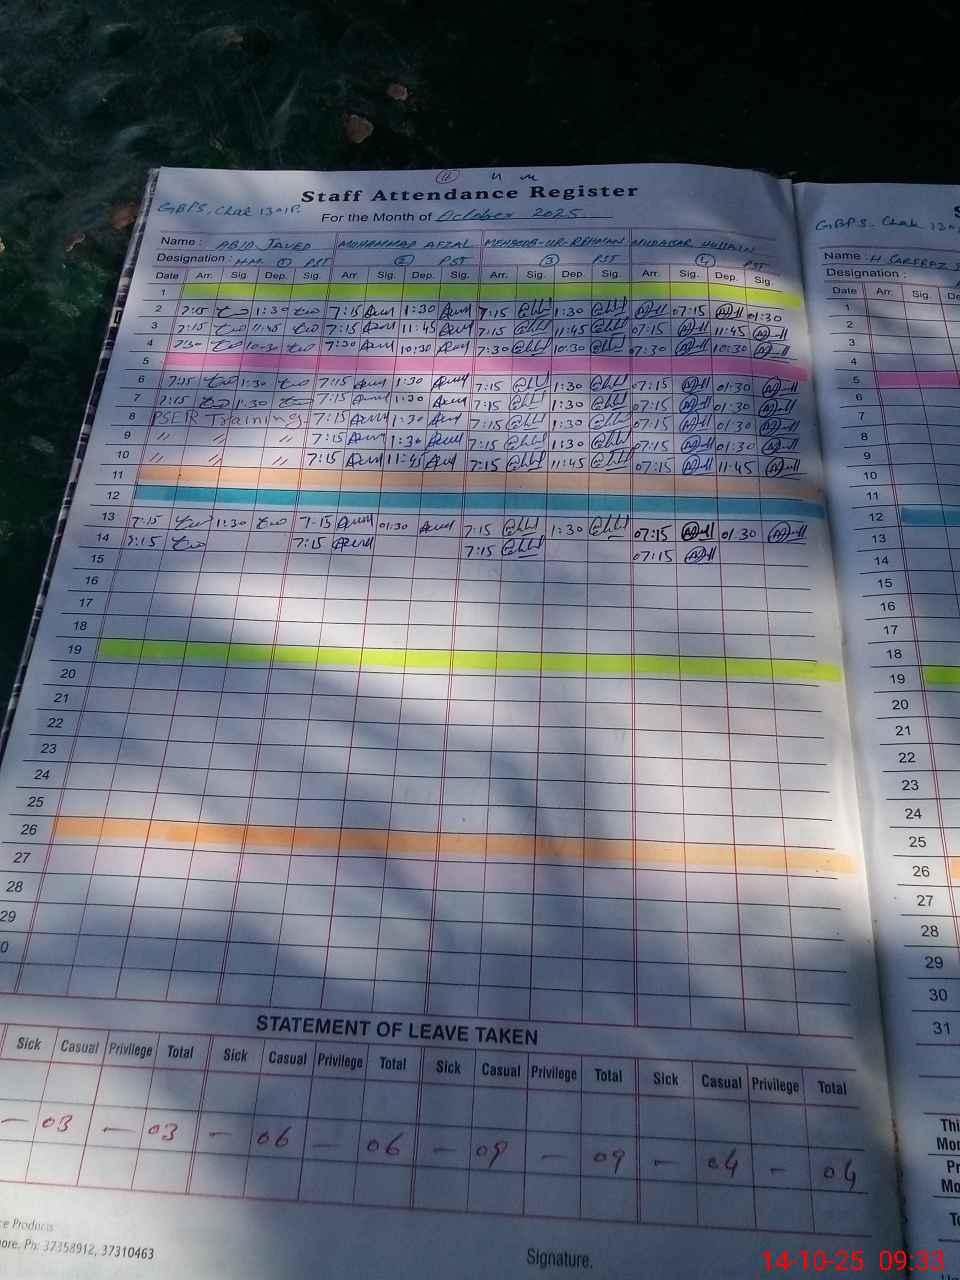 Staff Attendance Register
GBPS, Chak 1301P. For the Month of October 2025
Name : ABID JAVED MUHAMMAD AFZAL MEHBOOB-UR-REHMAN MUDASAR HUSSAIN
Designation : H.M. ① PST ② PST ③ PST ④ PST
Date Arr. Sig. Dep. Sig. Arr Sig. Dep. Sig. Arr. Sig. Dep. Sig. Arr. Sig. Dep. Sig.
1
2 7:15 1:30 7:15 1:30 7:15 1:30 07:15 01:30
3 7:15 11:45 7:15 11:45 7:15 11:45 07:15 11:45
4 7:30 10:30 7:30 10:30 7:30 10:30 07:30 10:30
5
6 7:15 1:30 7:15 1:30 7:15 1:30 07:15 01:30
7 7:15 1:30 7:15 1:30 7:15 1:30 07:15 01:30
8 PSER Training 7:15 1:30 7:15 1:30 07:15 01:30
9 〃 〃 〃 7:15 1:30 7:15 1:30 07:15 01:30
10 〃 〃 〃 7:15 11:45 7:15 11:45 07:15 11:45
11
12
13 7:15 1:30 7-15 01:30 7:15 1:30 07:15 01:30
14 7:15 7:15 7:15 07:15
15
16
17
18
19
20
21
22
23
24
25
26
27
28
29
0
STATEMENT OF LEAVE TAKEN
Sick Casual Privilege Total Sick Casual Privilege Total Sick Casual Privilege Total Sick Casual Privilege Total
— 03 — 03 — 06 — 06 — 09 — 09 — 04 — 04
ce Products
ore. Ph: 37358912, 37310463
Signature.
S
GBPS. Chak 130
Name : H. SARFRAZ
Designation :
Date Arr. Sig. De
1
2
3
4
5
6
7
8
9
10
11
12
13
14
15
16
17
18
19
20
21
22
23
24
25
26
27
28
29
30
31
Thi
Mon
Pr
Mo
To
14-10-25 09:33